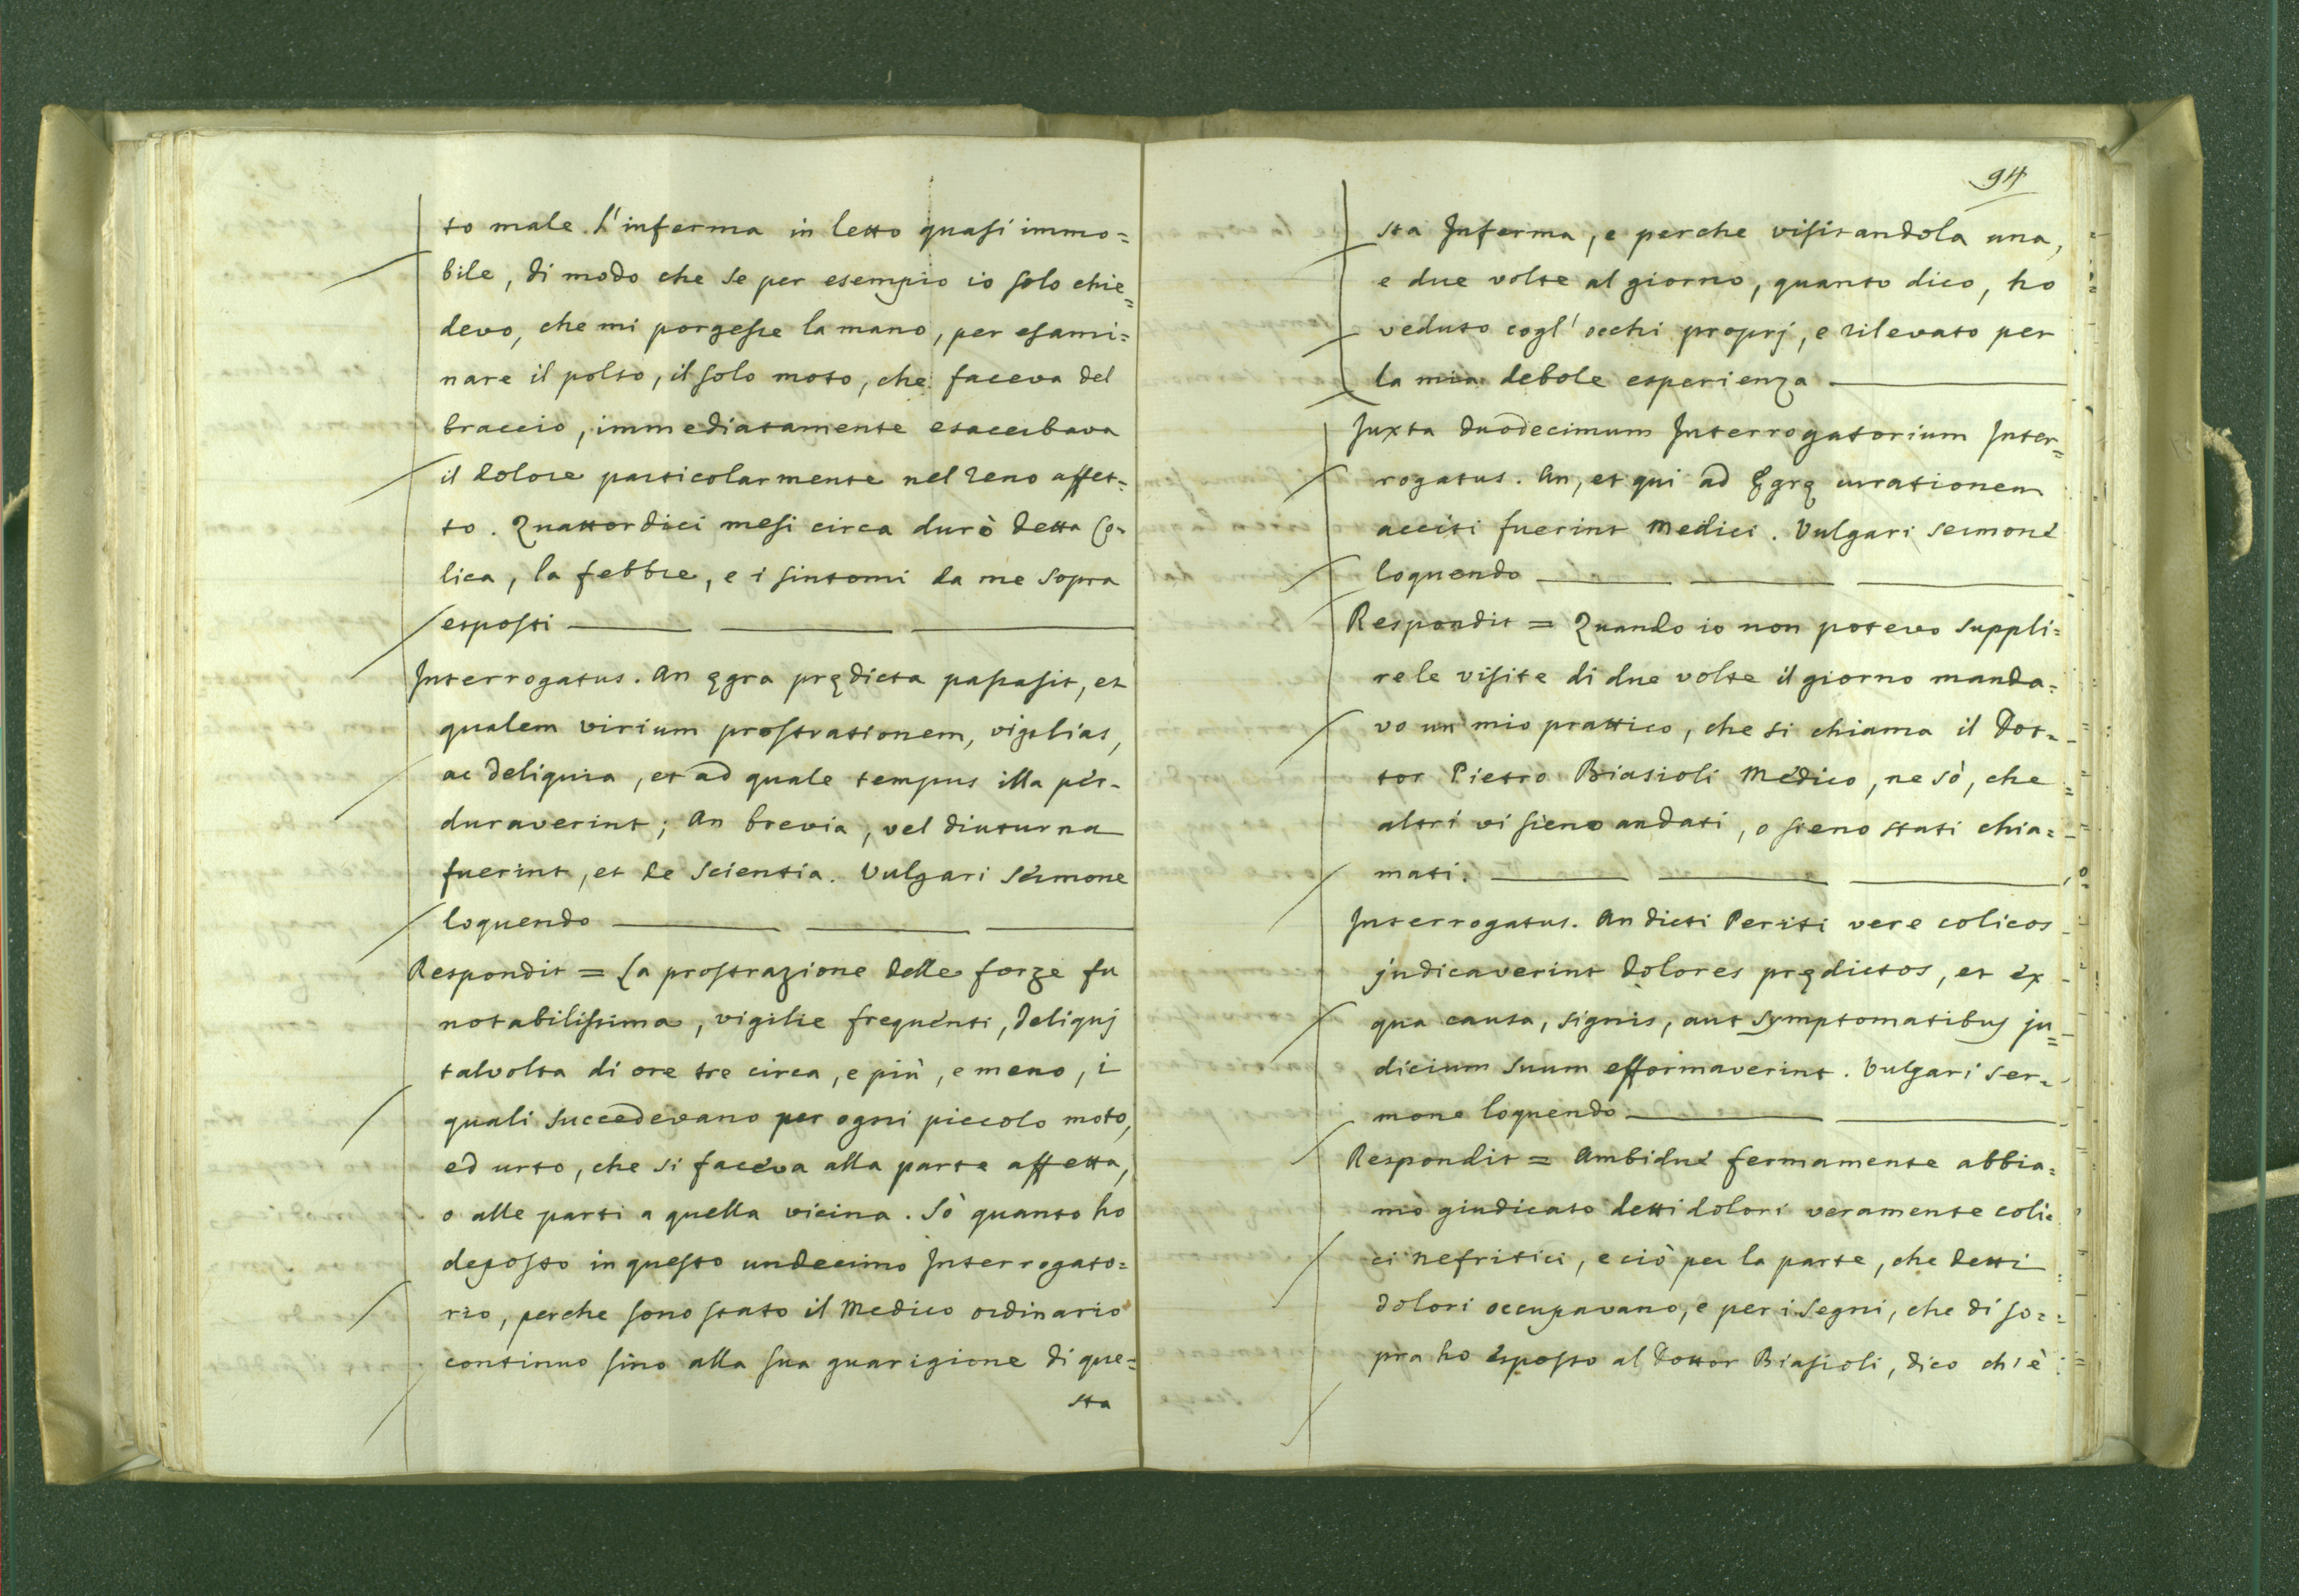 to male. L'inferma in letto quasi immo=
bile, di modo che se per esempio io solo chie=
devo, che mi porgesse la mano, per esami=
nare il polso, il solo moto, che faceva del
braccio, immediatamente esacerbava
il dolore particolarmente nel reno affet=
to. Quattordici mesi circa durò detta Co=
lica, la febbre, e i sintomi da me sopra
esposti
Interrogatus. An ęgra prędicta passa sit, et
qualem virium prostrationem, vigilias,
ac deliquia, et ad quale tempus illa per=
duraverint; An brevia, vel diuturna
fuerint, et de scientia. Vulgari sermone
loquendo
Respondit = La prostrazione delle forze fu
notabilissima, vigilie frequenti, deliquj
talvolta di ore tre circa, e più, e meno, i
quali succedevano per ogni piccolo moto,
ed urto, che si faceva alla parte affetta,
o alle parti a quella vicina. Sò quanto ho
deposto in questo undecimo Interrogato=
rio, perche sono stato il Medico ordinario
continuo sino alla sua guarigione di que=
sta
94
sta Inferma, e perche visitandola una,
e due volte al giorno, quanto dico, ho
veduto cogl' occhi proprj, e rilevato per
la mia debole esperienza
Juxta duodecimum Interrogatorium Inter=
rogatus. An, et qui ad Ęgrę curationem
acciti fuerint Medici. Vulgari sermone
loquendo
Respondit = Quando io non potevo suppli=
re le visite di due volte il giorno manda=
vo un mio prattico, che si chiama il Dot=
tor Pietro Biasioli Medico, ne sò, che
altri vi sieno andati, o sieno stati chia=
mati.
Interrogatus. An dicti Periti vere colicos
judicaverint dolores prędictos, et ex
qua causa, signis, aut symptomatibus ju=
dicium suum efformaverint. Vulgari ser=
mone loquendo
Respondit = Ambidue fermamente abbia=
mo giudicato detti dolori veramente coli=
ci nefritici, e ciò per la parte, che detti
dolori occupavano, e per i segni, che di so=
pra ho esposto al Dottor Biasioli, dico ch'è